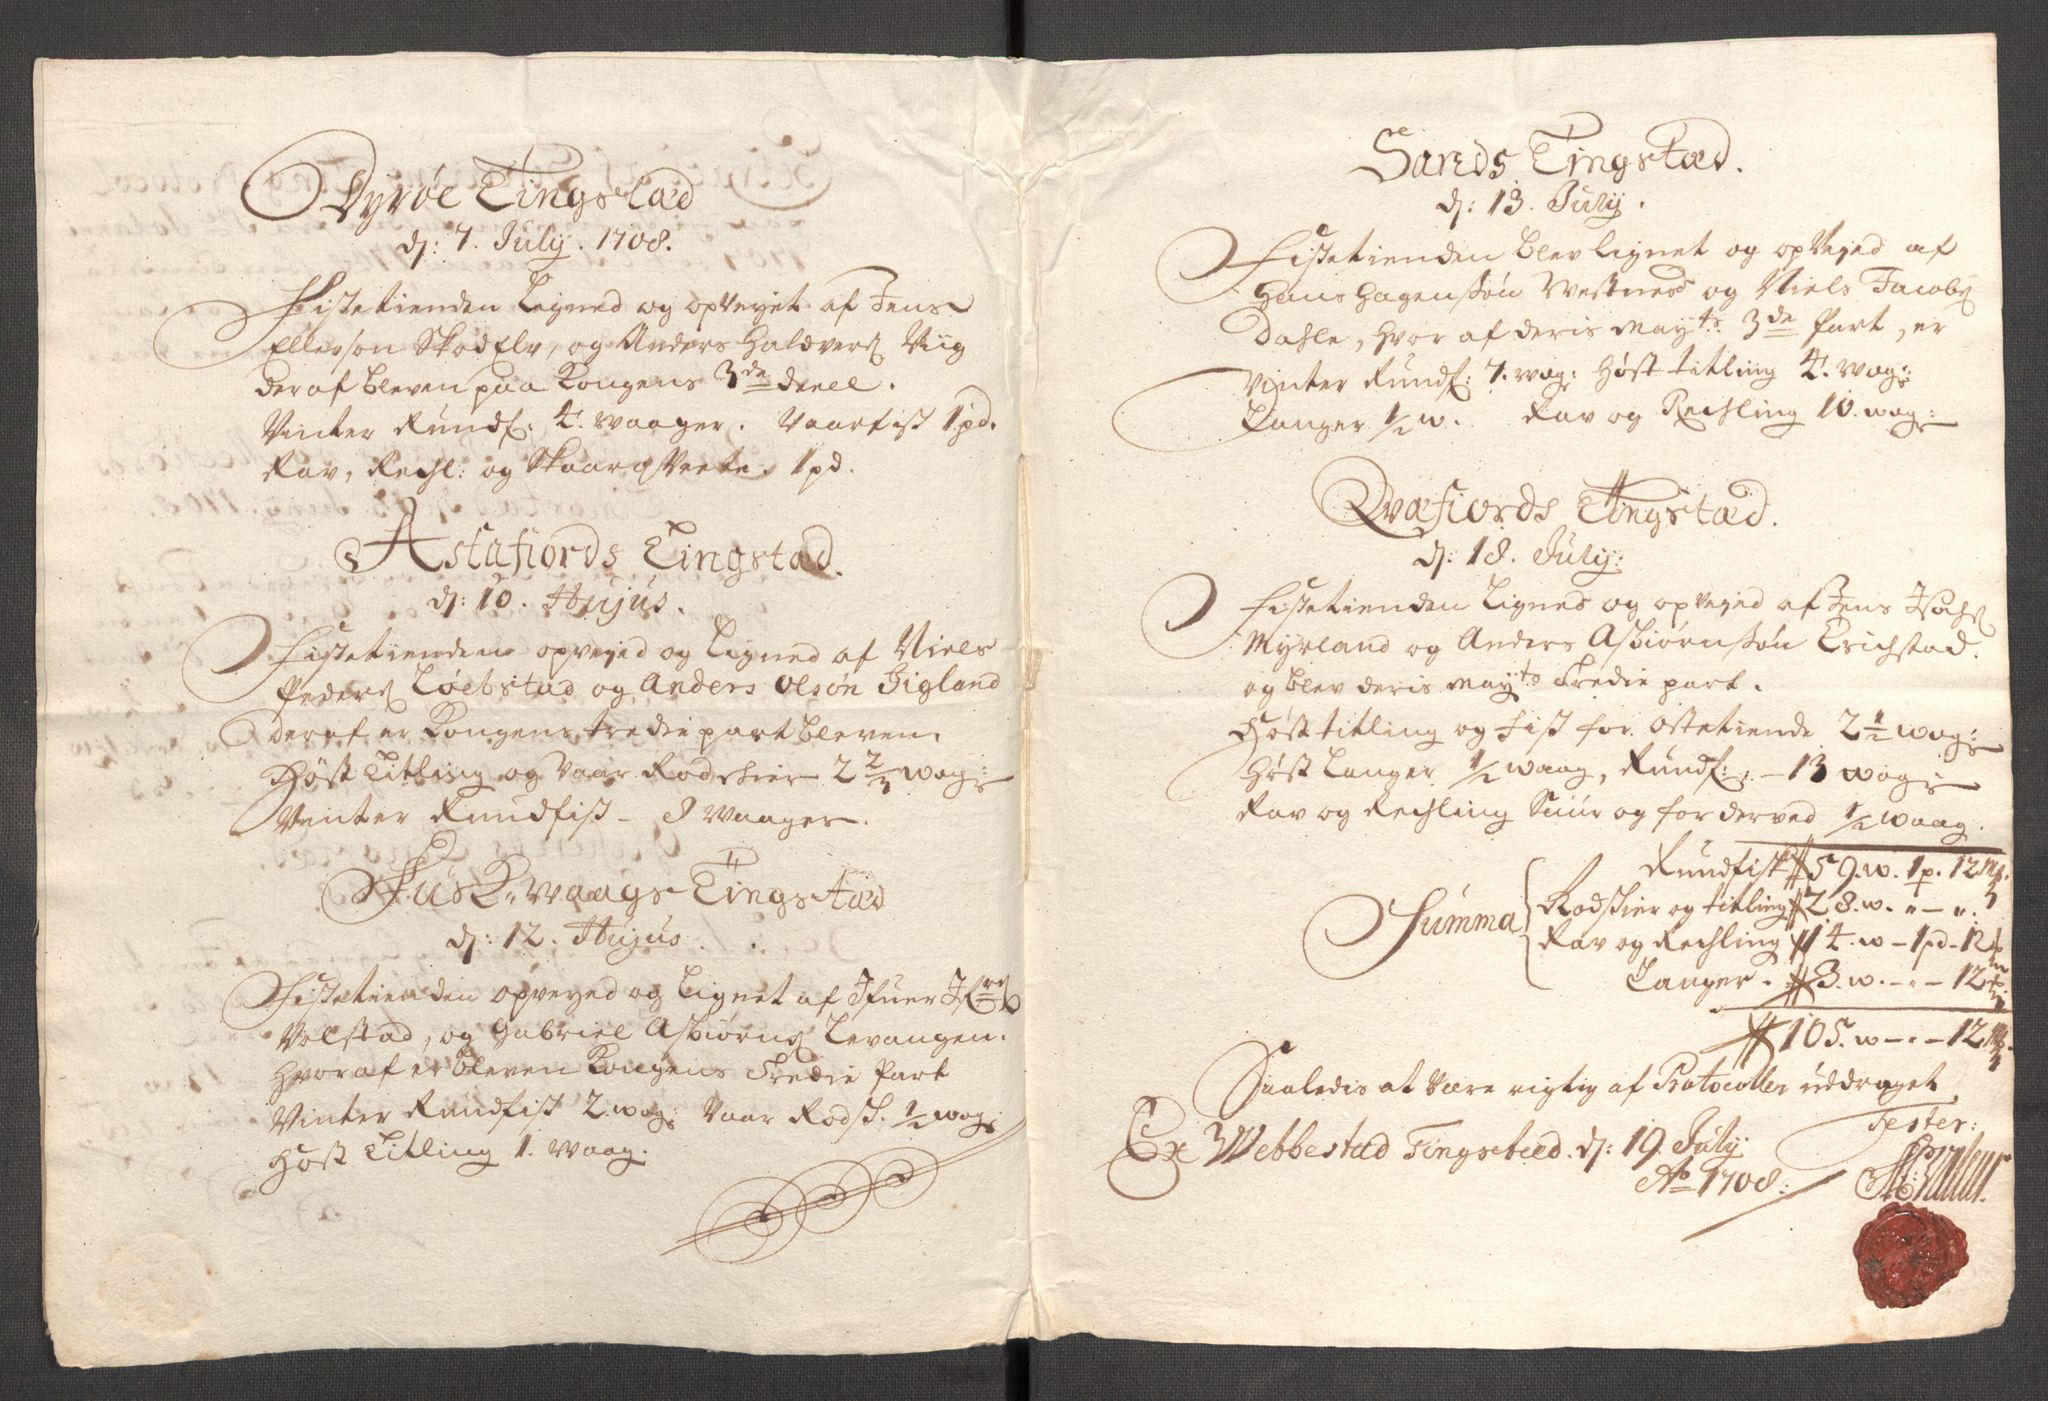 Dyrøe Tingstæd
d: 7. July. 1708.
Fisketienden Ligned og opveyet af Jens
Ellerson Skodelv, og Anders Haldvers Viig
deraf bleven paa Kongens 3de deell.
Vinter Rundf: 4. waager. Vaarfisk 1 pd.
Rav, Rechl: og Skaarqveete. 1 pd.
Astafiords Tingstad.
d: 10. Hujus.
Fisketienden opveyed og Ligned af Niels
Peders Løebstad og Anders Olsøn
deraf er Kongens tredie part bleven
Høst Titling og Vaar Rodskier 2 2/3 wog:
Vinter Rundfisk - 8 Waager.
Fuskewaags Tingstæd
d: 12. Hujus.
Fisketienden opveyed og Lignet af Ifuer
Volstad, og Gabriel Asbiørns Levangen.
Hvoraf er bleven Kongens Tredie Part
Vinter Rundfisk 2. wog: Vaar Rodsk. 1/2 wog:
Høst Titling 1. Waag.
Sands Tingstæd.
d: 13. July.
Fisketienden blev lignet og opveyed af
Hans Hagensøn Westnes og Niels Jacobs
Dahle, hvor af deris Mayts 3de Part, er
Vinter Rundf: 7. wog: Høst titling 4. wog:
Langer 1/2 w. Rav og Rechling 10. wog:
Qvæfiords Tingstæd.
d: 18. July:
Fisketienden Ligned og opveyed af Jens
Myrland og Anders Asbiørnsøn Erichstad.
og blev deris Mayts Tredie part.
Høst titling og fisk for Ostetiende 2 1/2 wog:
Høst Langer 1/2 waag, Rundf: - 13 wog:
Rav og Rechling Suur og forderved 1/2 waag.
Rundfisk 59. w. 1 p. 12 mk.
Summa Rodskier og titling 28. w. " - ".
Rav og Rechling 14. w - 1 pd - 12
Langer. 3. w. - " - 12
105. w - " - 12 mk.
Saaledis at være rigtig af Protocollen uddraget
Tester:
Ex Webbestad Tingsteed. d: 19. July
Ao 1708.